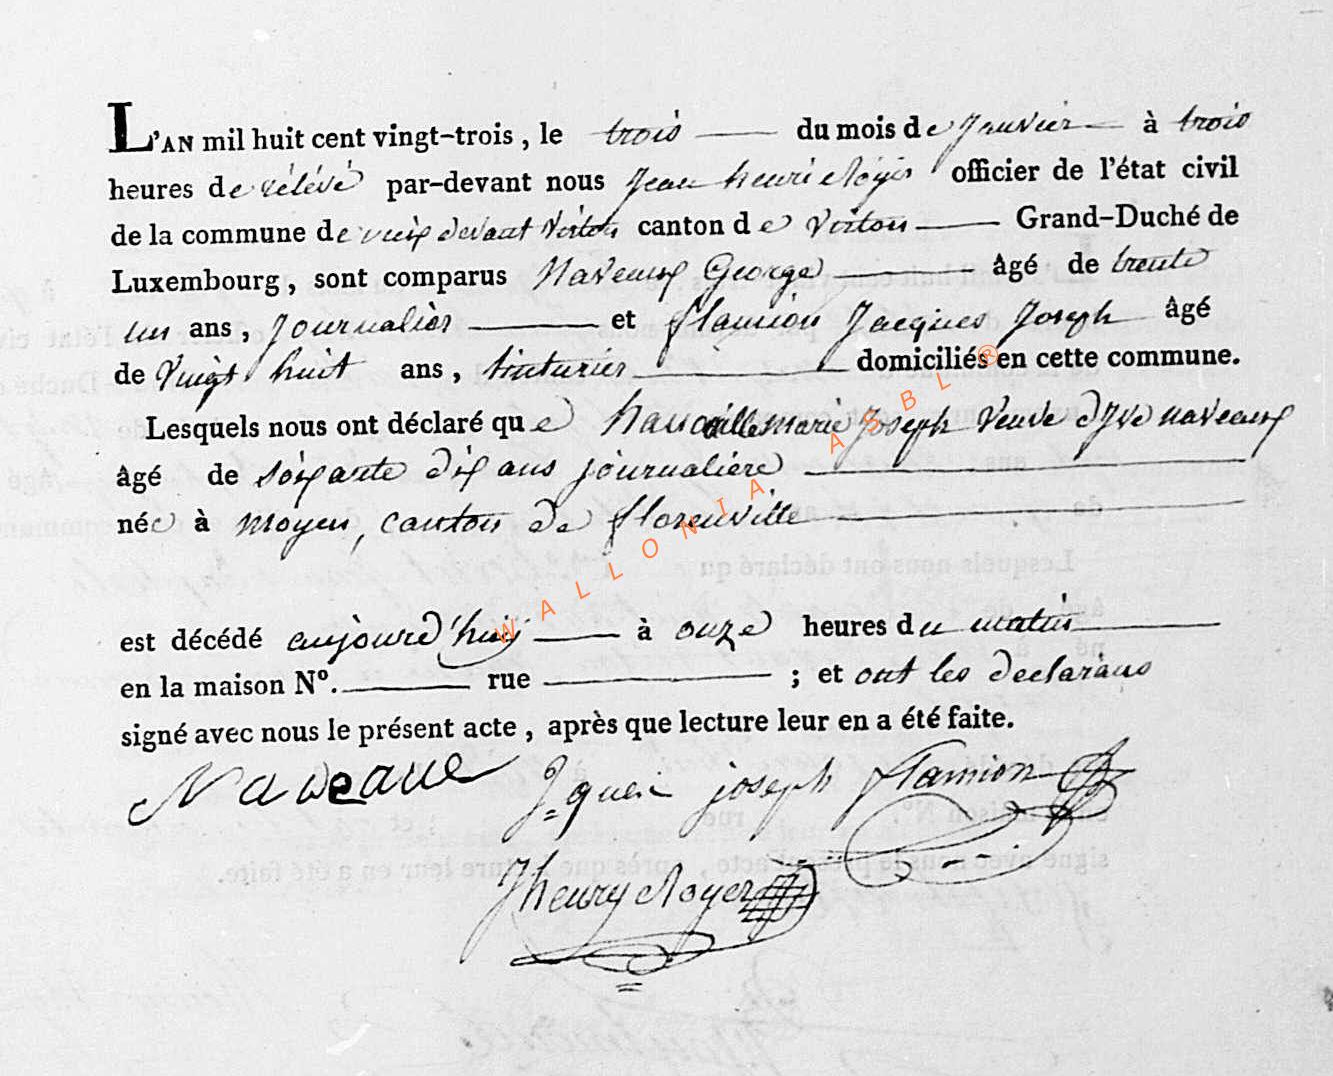 L'AN mil huit cent vingt-trois, le trois du mois de Janvier à trois
heures de rélévé par-devant nous Jean henri officier de l'état civil
de la commune de vieux devant Virton canton de Virton Grand-Duché de
Luxembourg, sont comparus Naveaux George âgé de trente
un ans, Journalièr et flamion Jacques Joseph âgé
de Vingt huit ans, tinturièr domiciliés en cette commune.
Lesquels nous ont déclaré que marie Joseph Veuve naveaux
âgé de soixante dix ans journalière
née à moyen, canton de florenville
est décédé aujourd'huij à onze heures du matin
en la maison Nº. rue ; et ont les declarans
signé avec nous le présent acte, après que lecture leur en a été faite.
Naveaue joseph flamion
Jhenry
WALLONIA ASBL ®